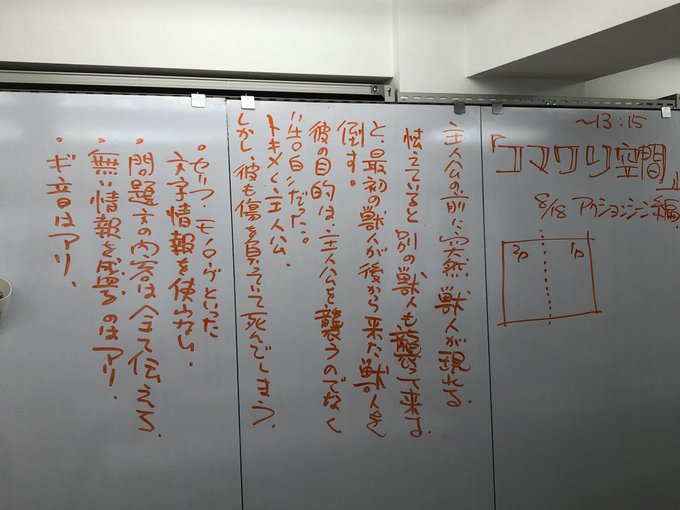 〜13:15
『コマワリ空間』
8/18 アクションシーン編
1p
2p
主人公の前に突然、獣人が現れる。
怯えていると別の獣人も襲って来る
と、最初の獣人が後から来た獣人を
倒す。
彼の目的は、主人公を襲うのでなく
"告白"だった。
トキメく主人公。
しかし、彼も傷を負っていて死んでしまう。
・セリフ、モノローグといった
文字情報を使わない。
・問題文の内容は全て伝えろ。
・無い情報を盛るのはアリ。
・ギ音はアリ。